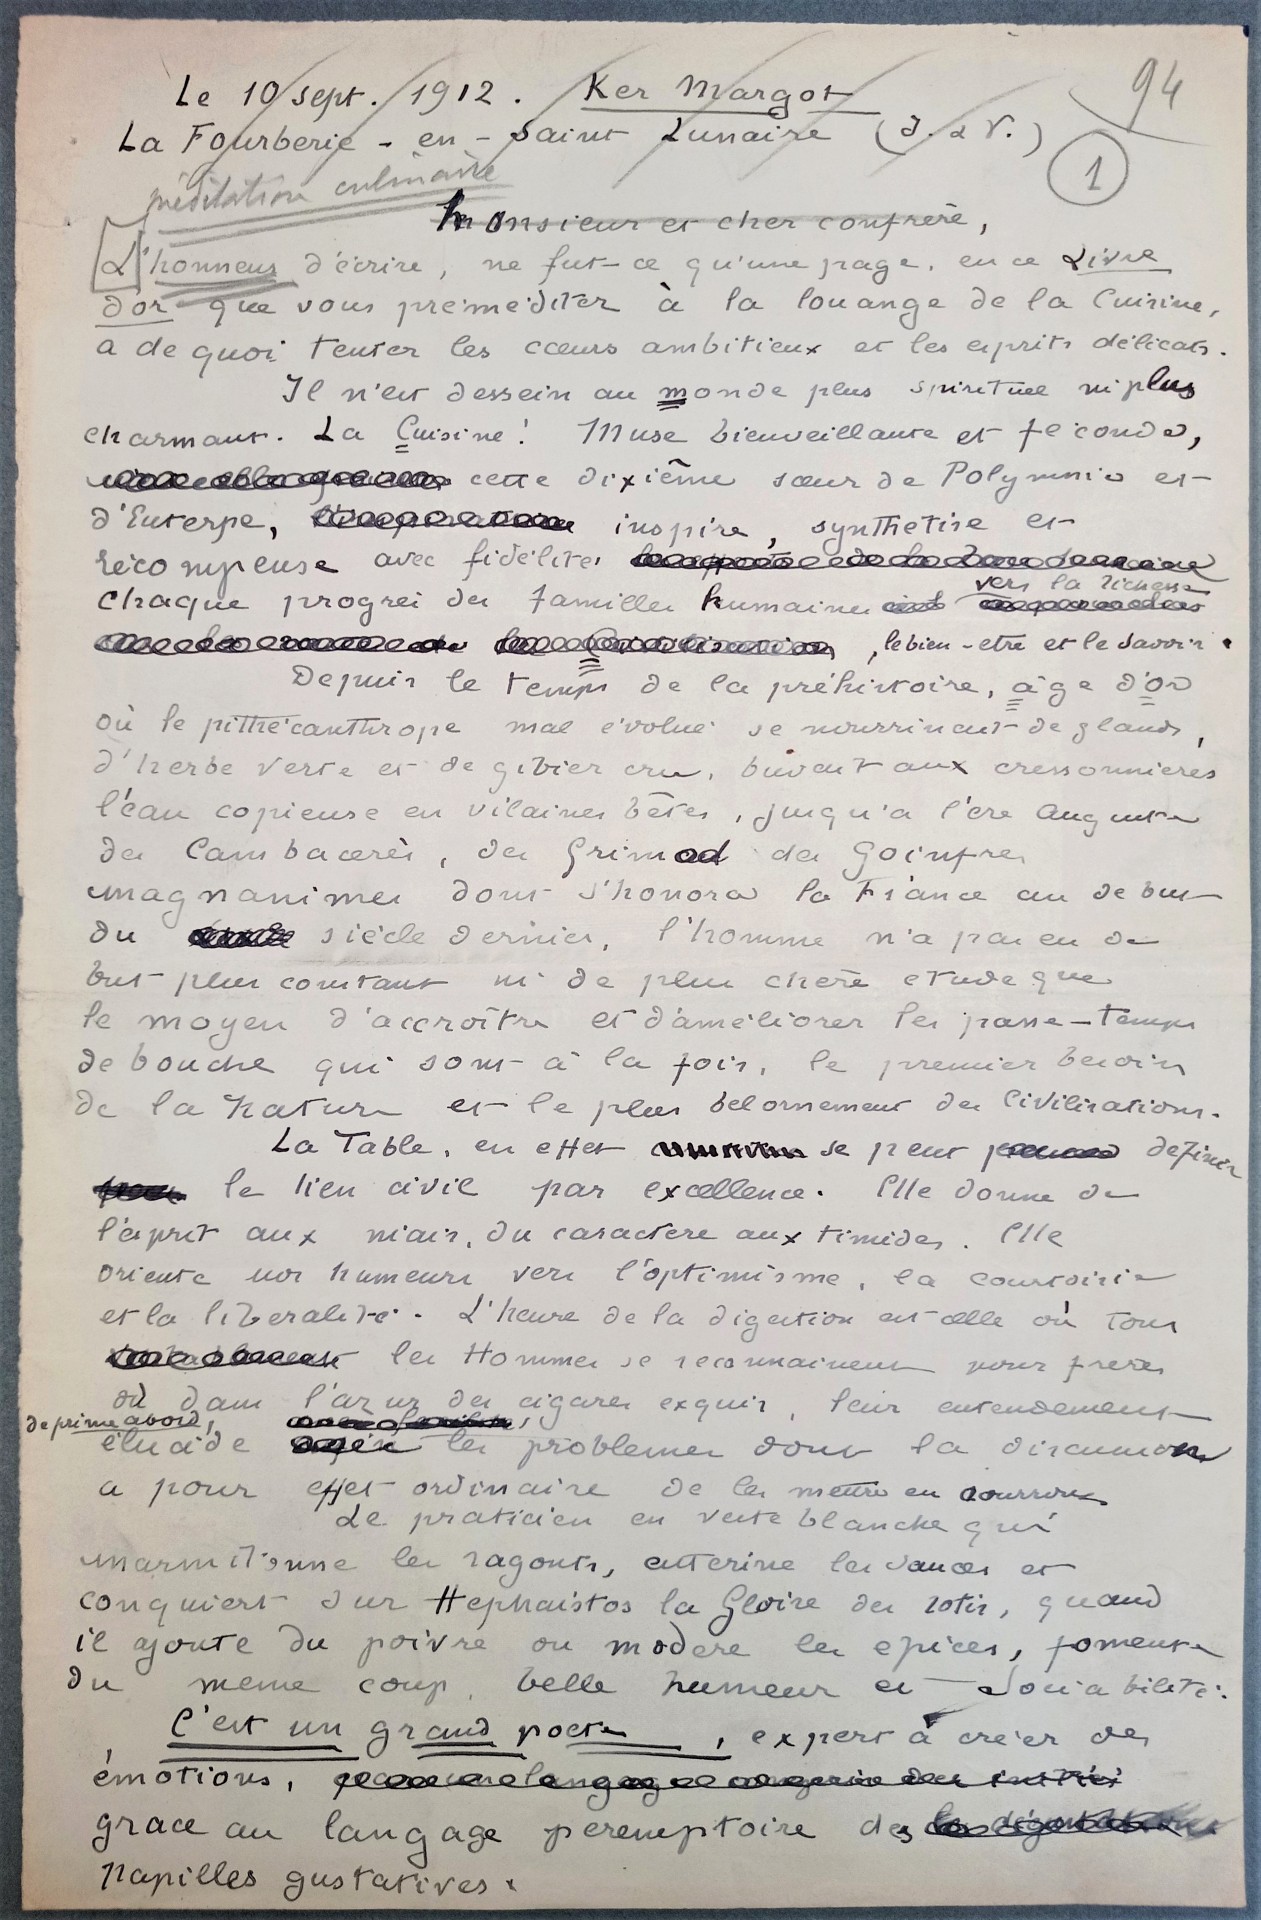 94
Le 10 sept. 1912. Ker Margot
La Fourberie - en - Saint Lunaire (I. & V.)
1
méditation culinaire
Monsieur et cher confrère,
L'honneur d'écrire, ne fut-ce qu'une page, en ce Livre
d'or que vous préméditez à la louange de la Cuisine,
a de quoi tenter les cœurs ambitieux et les esprits délicats.
Il n'est dessein au monde plus spirituel ni plus
charmant. La Cuisine! Muse bienveillante et féconde,
cette dixième sœur de Polymnie et
d'Euterpe, inspire, synthétise et
récompense avec fidélité
vers la richesse
chaque progrès des familles humaines
, le bien-etre et le savoir.
Depuis le temps de la préhistoire, âge d'or
où le pithécanthrope mal évolué se nourrissait de glands,
d'herbe verte et de gibier cru, buvait aux cressonnieres
l'eau copieuse en vilaines bêtes, jusqu'a l'ère auguste
des Cambacerès, des Grimod des Goinfres
magnanimes dont s'honora la France au debut
du siècle dernier, l'homme n'a pas eu de
but plus constant ni de plus chère etude que
le moyen d'accroître et d'améliorer les passe-temps
de bouche qui sont à la fois, le premier besoin
de la Nature et le plus bel ornement des Civilisations.
La Table, en effet se peut définir
le lien civil par excellence. Elle donne de
l'esprit aux niais, du caractère aux timides. Elle
oriente nos humeurs vers l'optimisme, la courtoisie
et la libéralité. L'heure de la digestion est celle où tous
les Hommes se reconnaissent pour freres
où dans l'azur des cigares exquis, leur entendement
de prime abord,
élucide les problemes dont la discussion
a pour effet ordinaire de les mettre en courroux
Le praticien en veste blanche qui
marmitonne les ragouts, entérine les sauces et
conquiert sur Hephaistos la Gloire des rotis, quand
il ajoute du poivre ou modère les epices, fomente
du meme coup, belle humeur et Sociabilité.
C'est un grand poete, expert à créer des
émotions,
grace au langage peremptoire des
papilles gustatives.